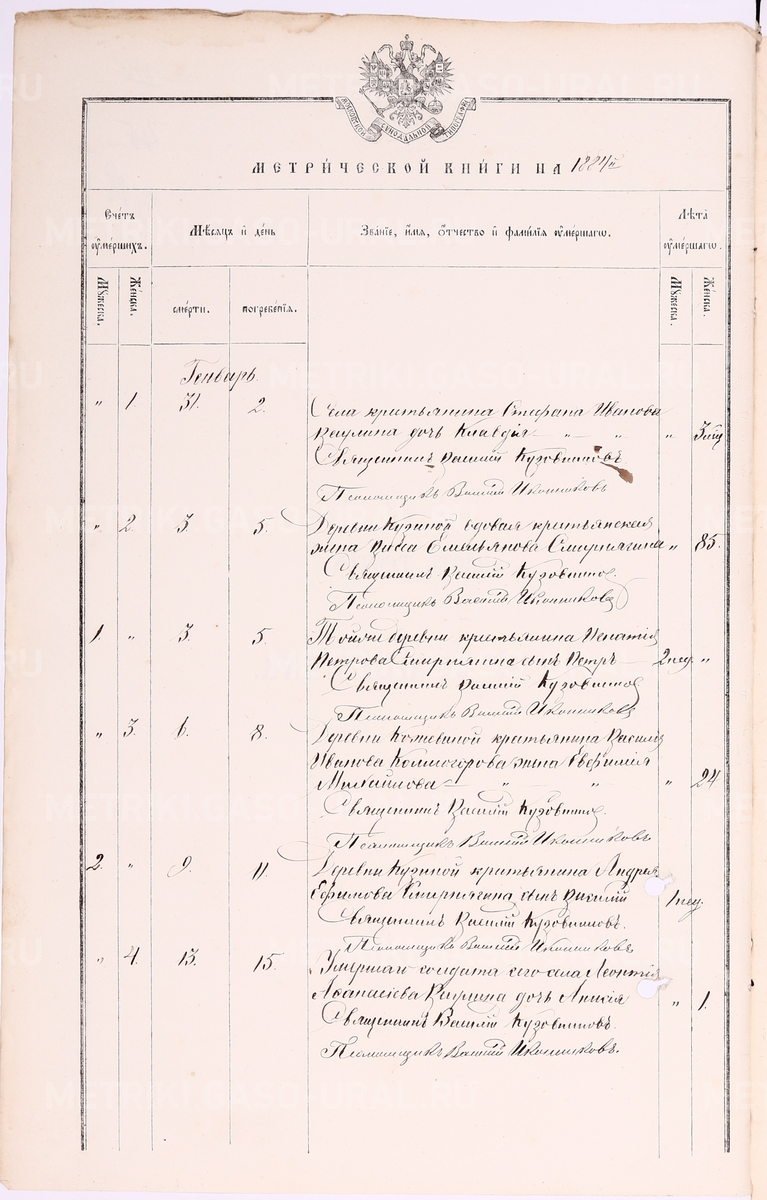 МОСКОВСКОЙ СѴНОДАЛЬНОЙ ТИПОГРАФІИ
МЕТРИЧЕСКОЙ КНИГИ НА 1884й
Счетъ умершихъ.
Мѣсяцъ и день
Званіе, имя, отчество и фамилія умершагω.
Лѣта умершагω.
Мужеска.
Женска.
смерти.
погребенія.
Мужеска.
Женска.
Генварь.
" 1 31. 2. Села крестьянина Стефана Иванова
Ваулина дочь Клавдія — " — " " 3
Священникъ Василій Кузовниковъ
Псаломщикъ Василій Иконниковъ
" 2. 3. 5. Деревни Кузиной вдовая крестьянская
жена Васса Емельянова Смирнягина " 85.
Священникъ Василій Кузовников
Псаломщикъ Василій Иконниковъ
1. " 3. 5. Тойже деревни крестьянина Игнатія
Петрова Смирнягина сынъ Петръ — 2 нед. "
Священникъ Василій Кузовников
Псаломщикъ Василій Иконниковъ
" 3. 6. 8. Деревни Кожевиной крестьянина Василія
Иванова Колмогорова жена Евфимія
Михайлова — " — " " 24
Священникъ Василій Кузовников
Псаломщикъ Василій Иконниковъ
2. " 9. 11. Деревни Кузиной крестьянина Андрея
Ефимова Смирнягина сынъ Василій 1 нед.
Священникъ Василій Кузовниковъ.
Псаломщикъ Василій Иконниковъ
" 4. 13. 15. Умершаго солдата сего села Леонтія
Аѳанасіева Ваулина дочь Анисія " 1.
Священникъ Василій Кузовниковъ.
Псаломщикъ Василій Иконниковъ.
METRIKI.GASO-URAL.RU